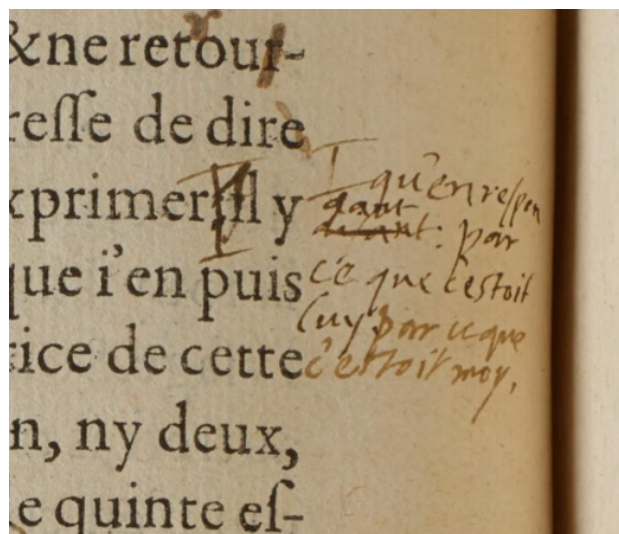 &ne retour-
resse de dire
xprimer, il y
que i'en puis
ice de cette
n, ny deux,
e quinte es-
qu'en respon
dant
disant: par
ce que c'estoit
luy par ce que
c'estoit moy.